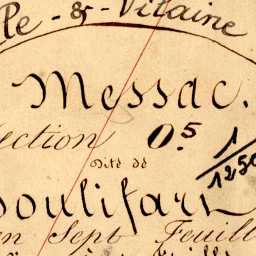 lle - & - Vilaine
Messac.
Section O.5
1/1250
Dite de
Boulifart
en Sept Feuill